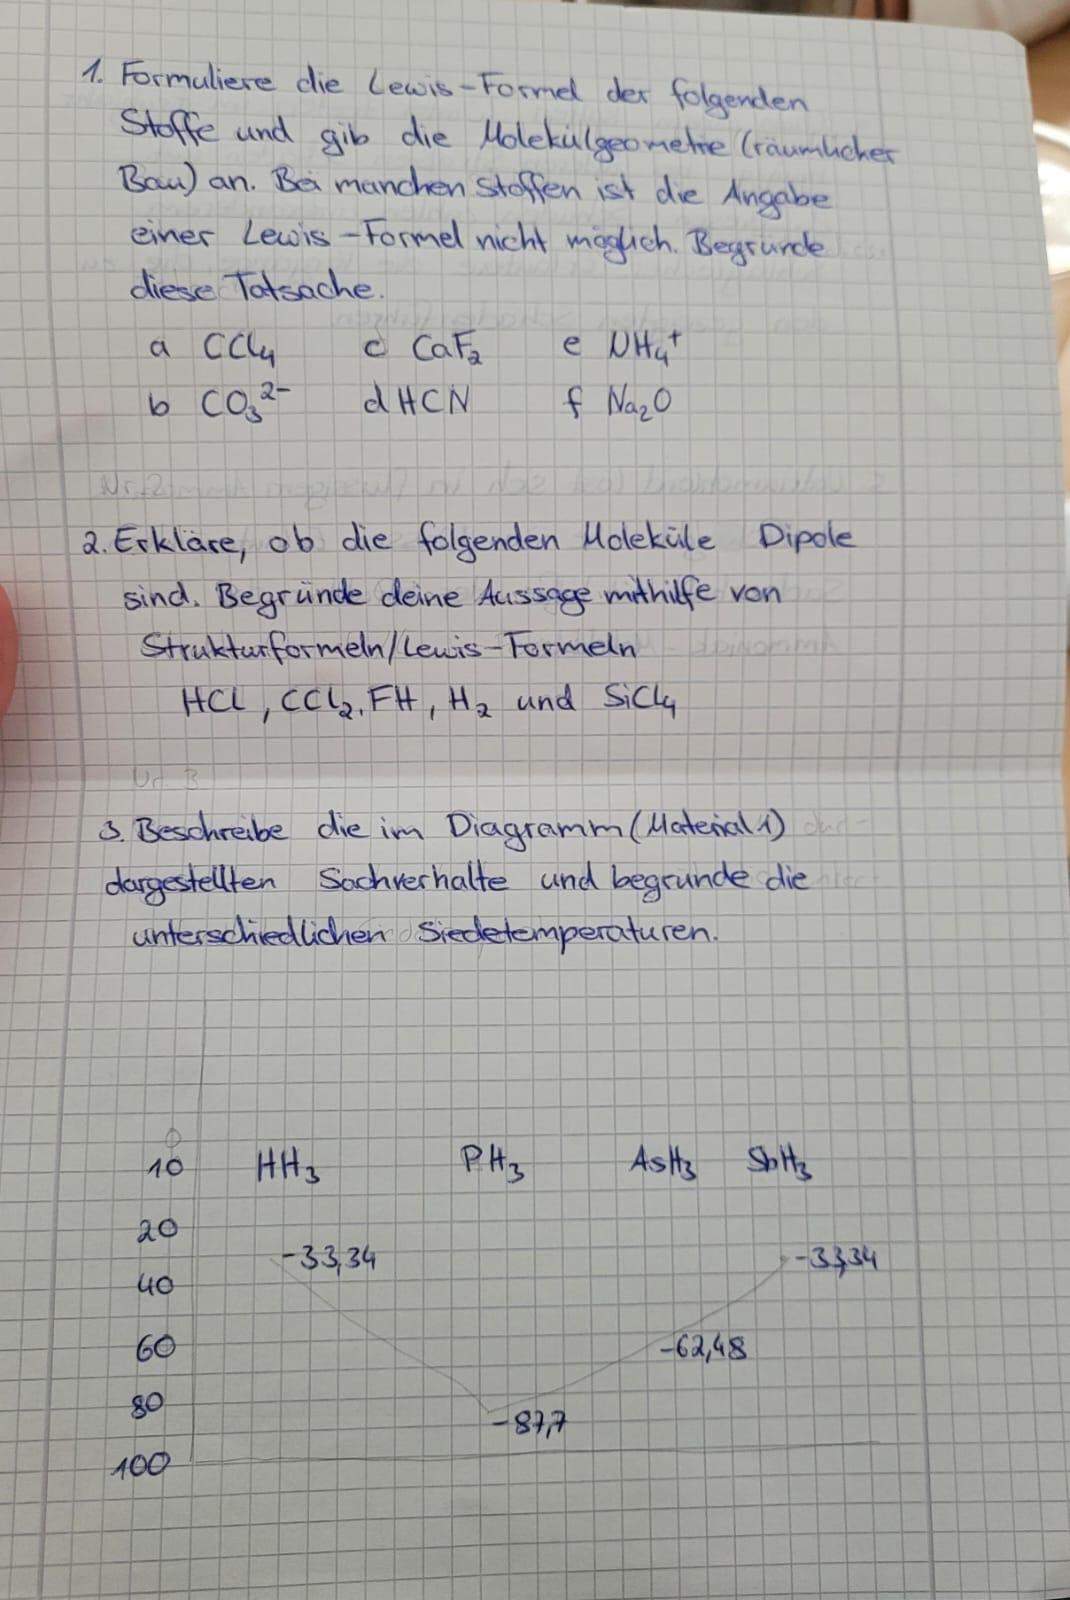 1. Formuliere die Lewis-Formel der folgenden
Stoffe und gib die Molekülgeometrie (räumlicher
Bau) an. Bei manchen Stoffen ist die Angabe
einer Lewis-Formel nicht möglich. Begründe
diese Tatsache.
a CCl₄ c CaF₂ e NH₄⁺
b CO₃²⁻ d HCN f Na₂O
2. Erkläre, ob die folgenden Moleküle Dipole
sind. Begründe deine Aussage mithilfe von
Strukturformeln/Lewis-Formeln
HCl, CCl₂, FH, H₂ und SiCl₄
3. Beschreibe die im Diagramm (Material 1)
dargestellten Sachverhalte und begründe die
unterschiedlichen Siedetemperaturen.
0
10 HH₃ PH₃ AsH₃ SbH₃
20
-33,34 -33,34
40
60 -62,48
80
-87,7
100